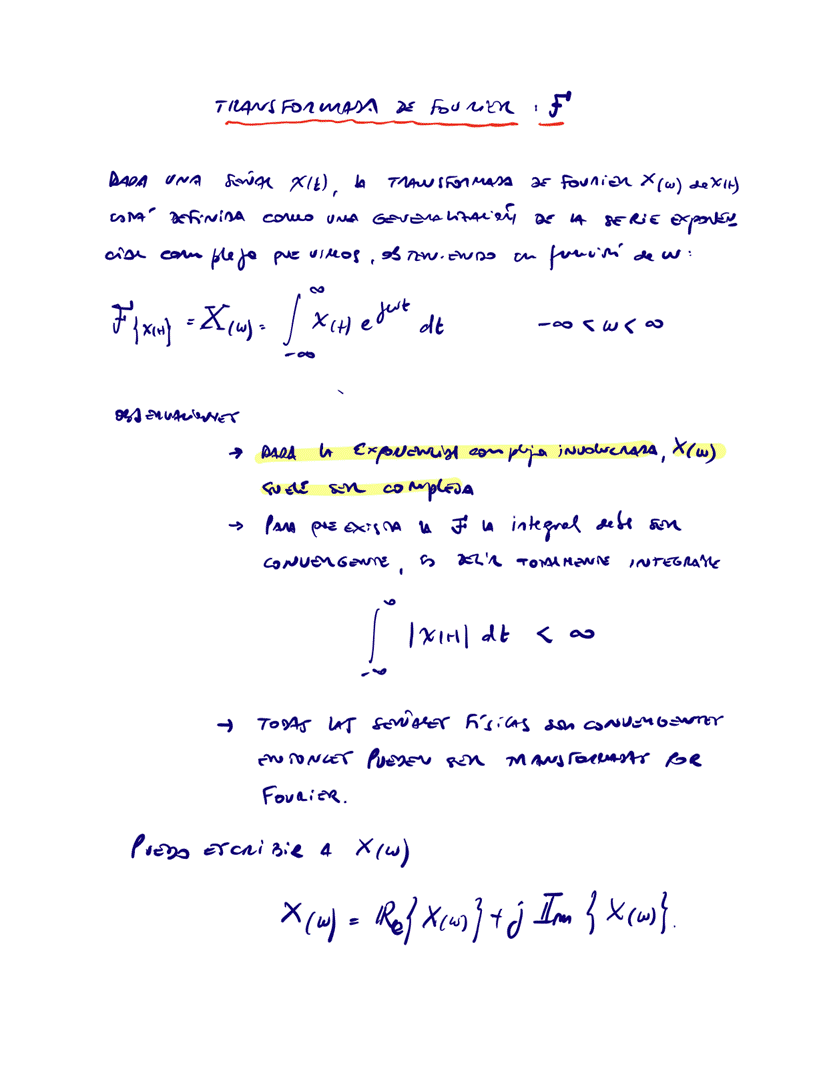 TRANSFORMADA DE FOURIER : F
DADA UNA SEÑAL X(t), la TRANSFORMADA DE FOURIER X(ω) de X(t)
ESTÁ DEFINIDA COMO UNA GENERALIZACIÓN DE LA SERIE EXPONEN
CIAL complejo QUE VIMOS, OBTENIENDO en función de ω:
F{X(t)} = X(ω) = ∫_{-∞}^{∞} X(t) e^{jωt} dt -∞ < ω < ∞
OBSERVACIONES
→ DADA LA EXPONENCIAL compleja INVOLUCRADA, X(ω)
SUELE SER COMPLEJA
→ PARA QUE EXISTA LA F LA integral debe SER
CONVERGENTE, ES DECIR TOTALMENTE INTEGRABLE
∫_{-∞}^{∞} |X(t)| dt < ∞
→ TODAS LAS SEÑALES FÍSICAS SON CONVERGENTES
ENTONCES PUEDEN SER TRANSFORMADAS POR
FOURIER.
PUEDO ESCRIBIR A X(ω)
X(ω) = Re{X(ω)} + j Im{X(ω)}.